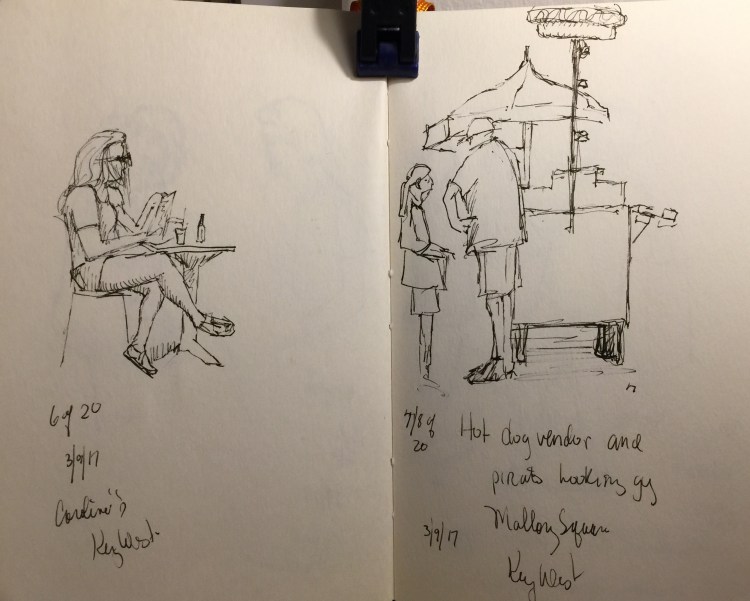 6 of 20
3/9/17
Caroline's
Key West
7/8 of
20
Hot dog vendor and
pirate looking guy
Mallory Square
3/9/17
Key West